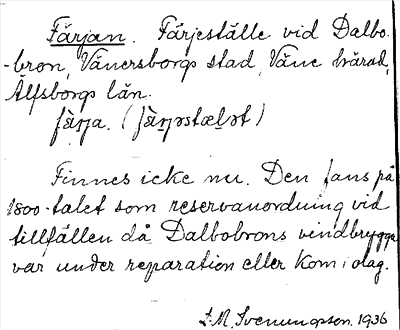 Färjan. Färjeställe vid Dalbo-
-bron, Vänersborgs stad, Väne härad,
Älfsborgs län.
Finnes icke nu. Den fans på
1800-talet som reservanordning vid
tillfällen då Dalbobrons vindbrygga
var under reparation eller kom i olag.
1936